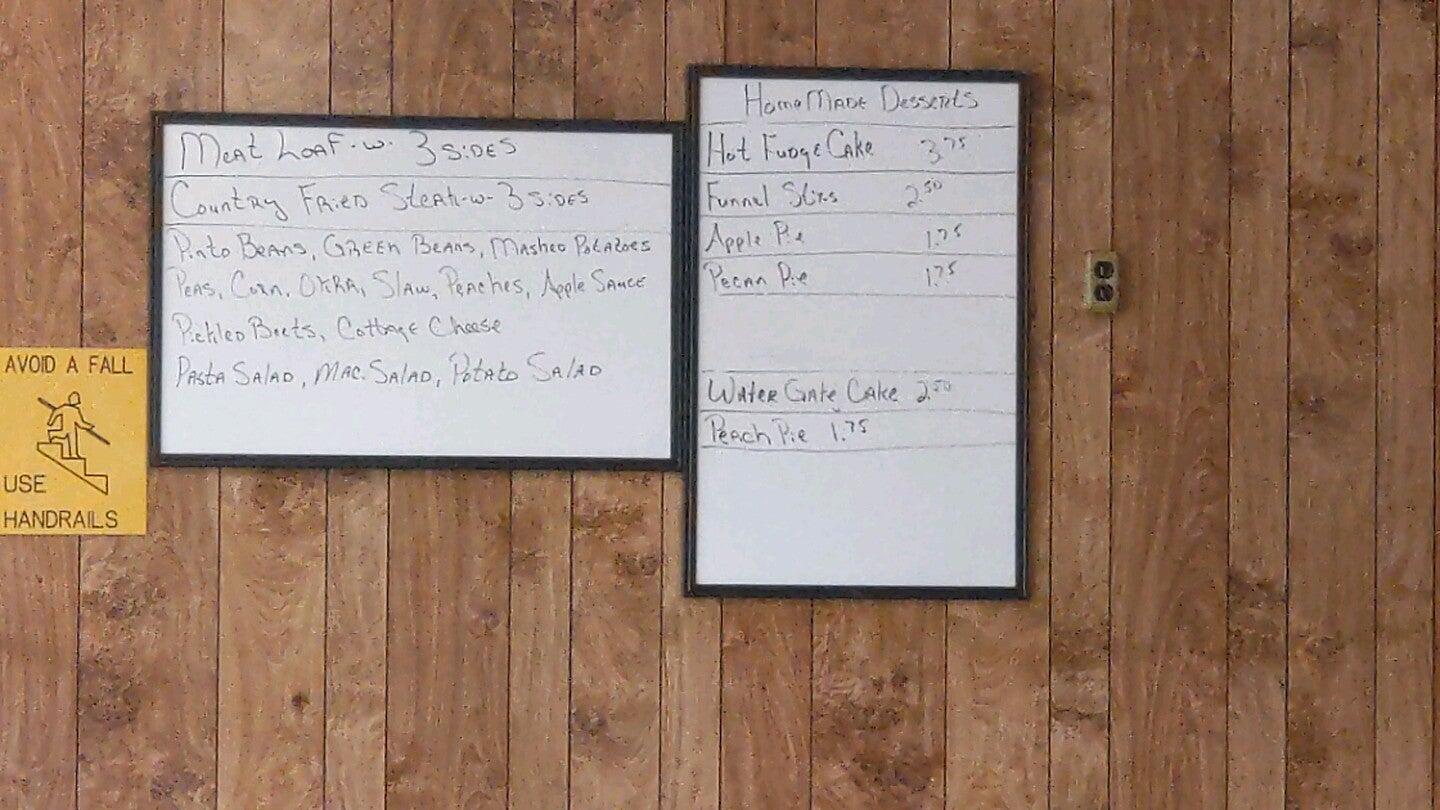 Meat Loaf-w- 3 sides
Country Fried Steak-w- 3 sides
Pinto Beans, Green Beans, Mashed Potatoes
Peas, Corn, Okra, Slaw, Peaches, Apple Sauce
Pickled Beets, Cottage Cheese
Pasta Salad, Mac. Salad, Potato Salad
HomeMade Desserts
Hot Fudge Cake 3.75
Funnel Stixs 2.50
Apple Pie 1.75
Pecan Pie 1.75
Water Gate Cake 2.50
Peach Pie 1.75
AVOID A FALL
USE
HANDRAILS